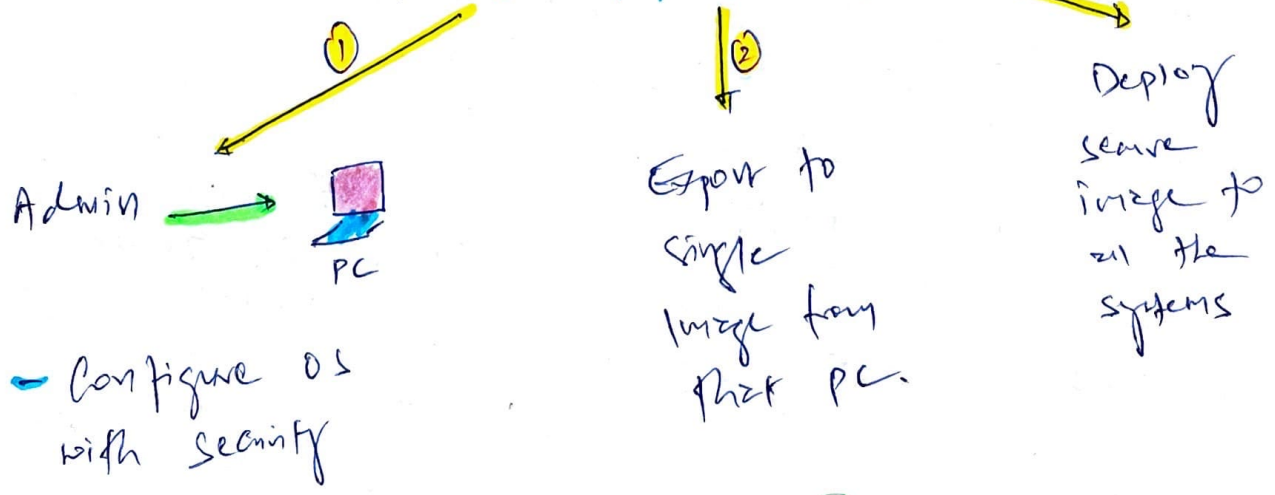 1
Admin
PC
- Configure OS
with security
2
Export to
single
Image from
that PC.
Deploy
secure
image to
all the
systems